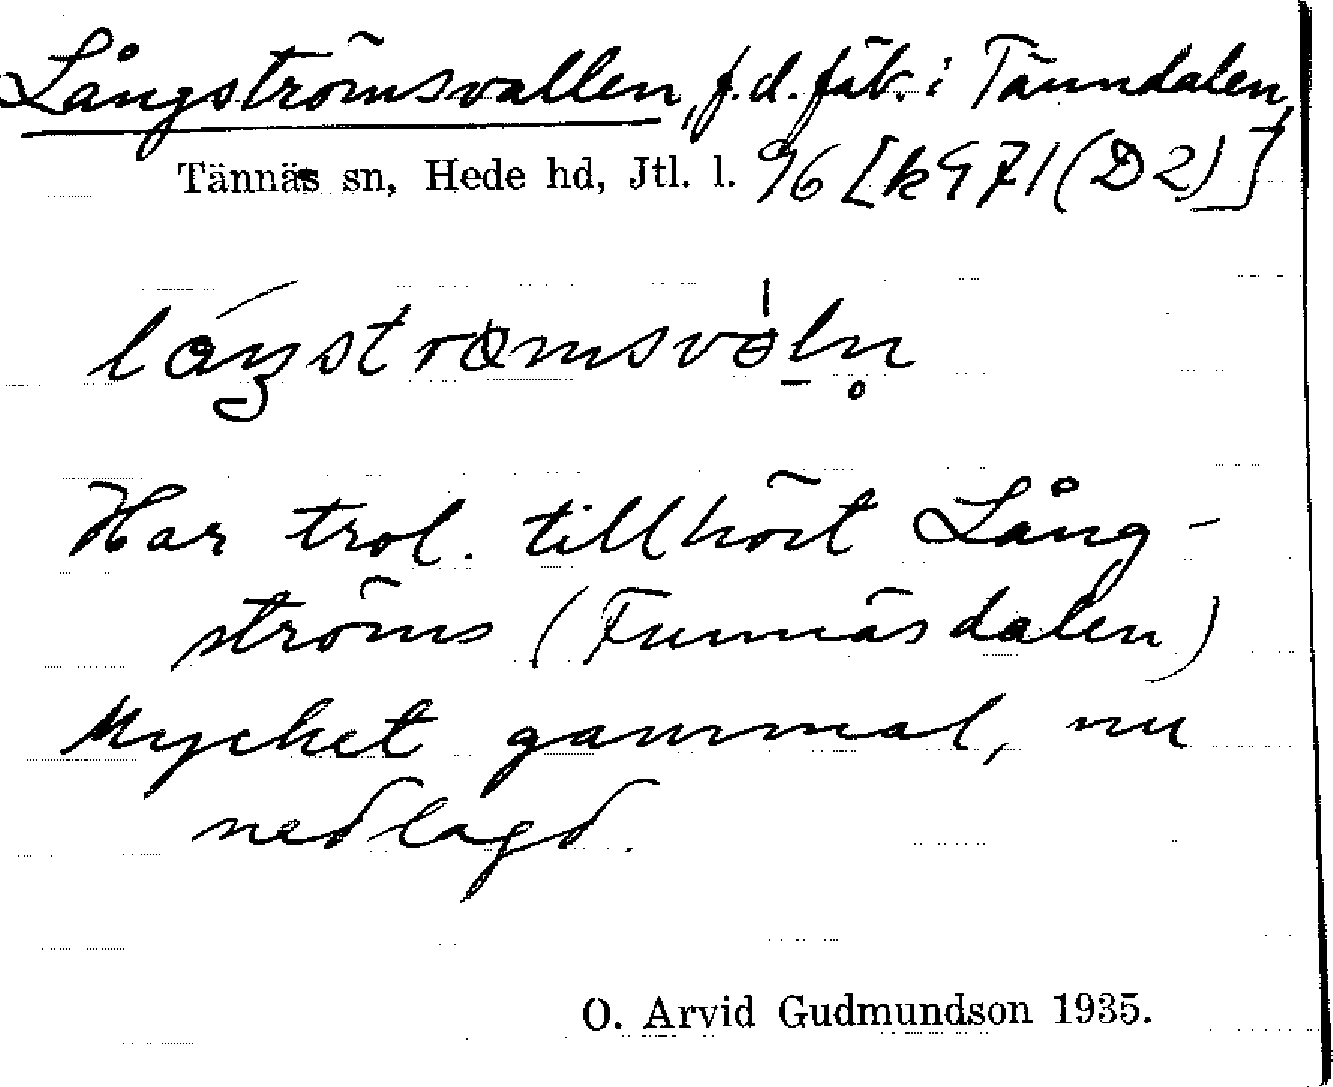 Långströmsvallen, f.d. fäb. i Tänndalen,
Tännäs sn, Hede hd, Jtl. l. 96 [k971(D2)]
Har trol. tillhört Lång-
ströms (Funnäsdalen)
Mycket gammal, nu
nedlagd.
O. Arvid Gudmundson 1935.